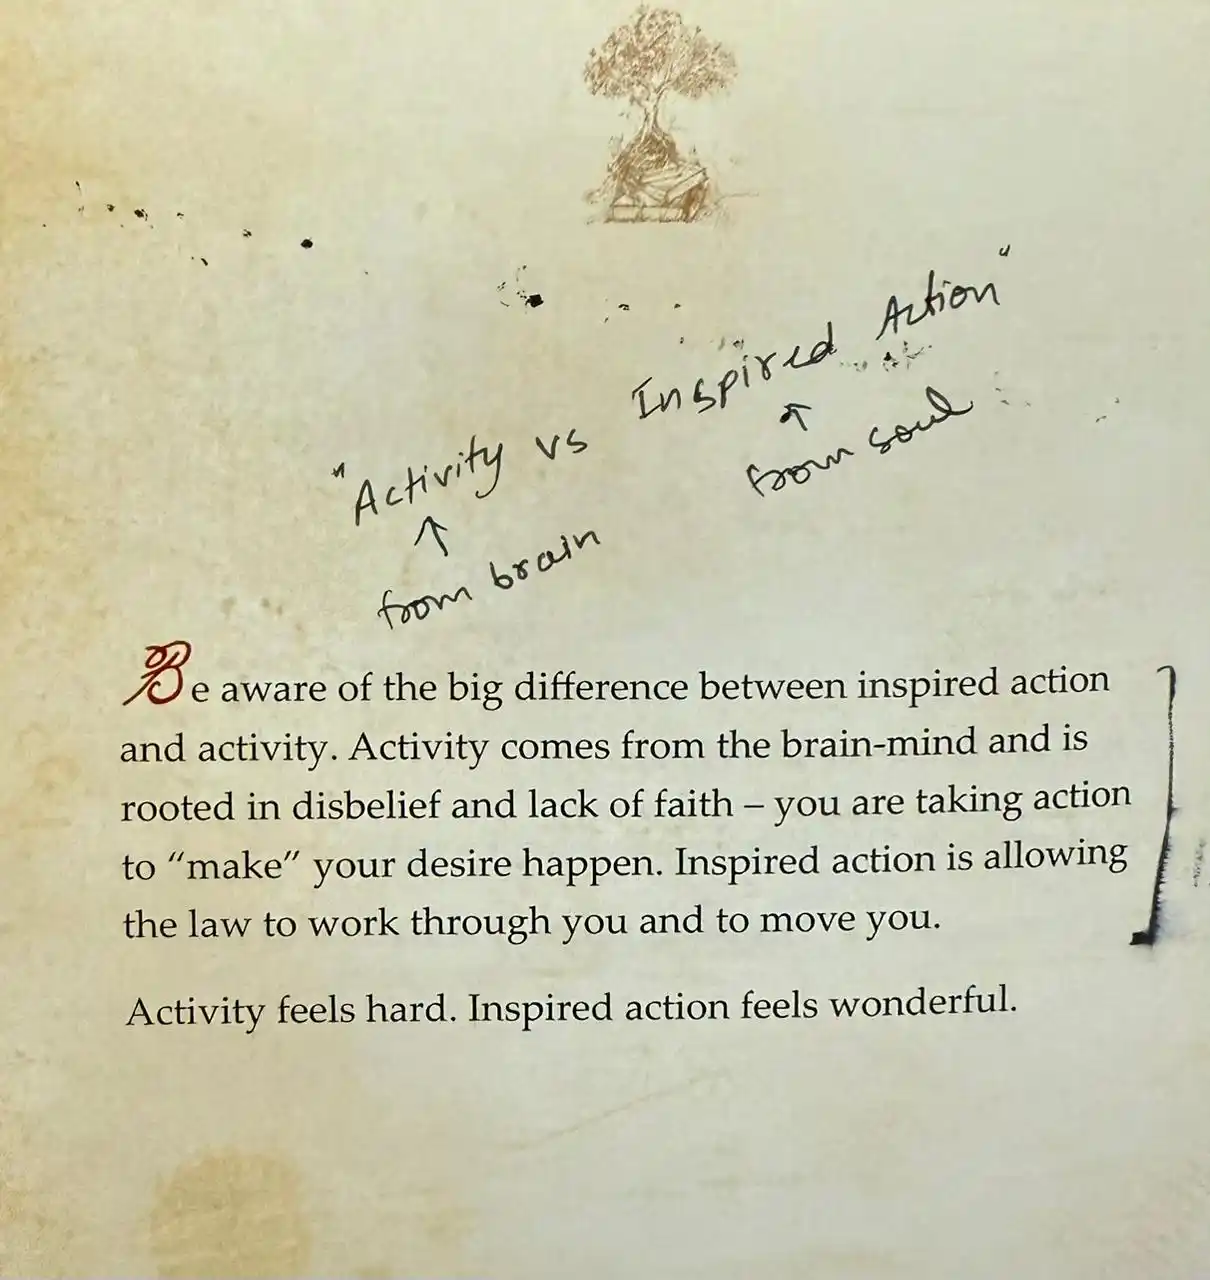 "Activity vs Inspired Action"
↑ ↑
from brain from soul
Be aware of the big difference between inspired action
and activity. Activity comes from the brain-mind and is
rooted in disbelief and lack of faith – you are taking action
to “make” your desire happen. Inspired action is allowing
the law to work through you and to move you.
Activity feels hard. Inspired action feels wonderful.